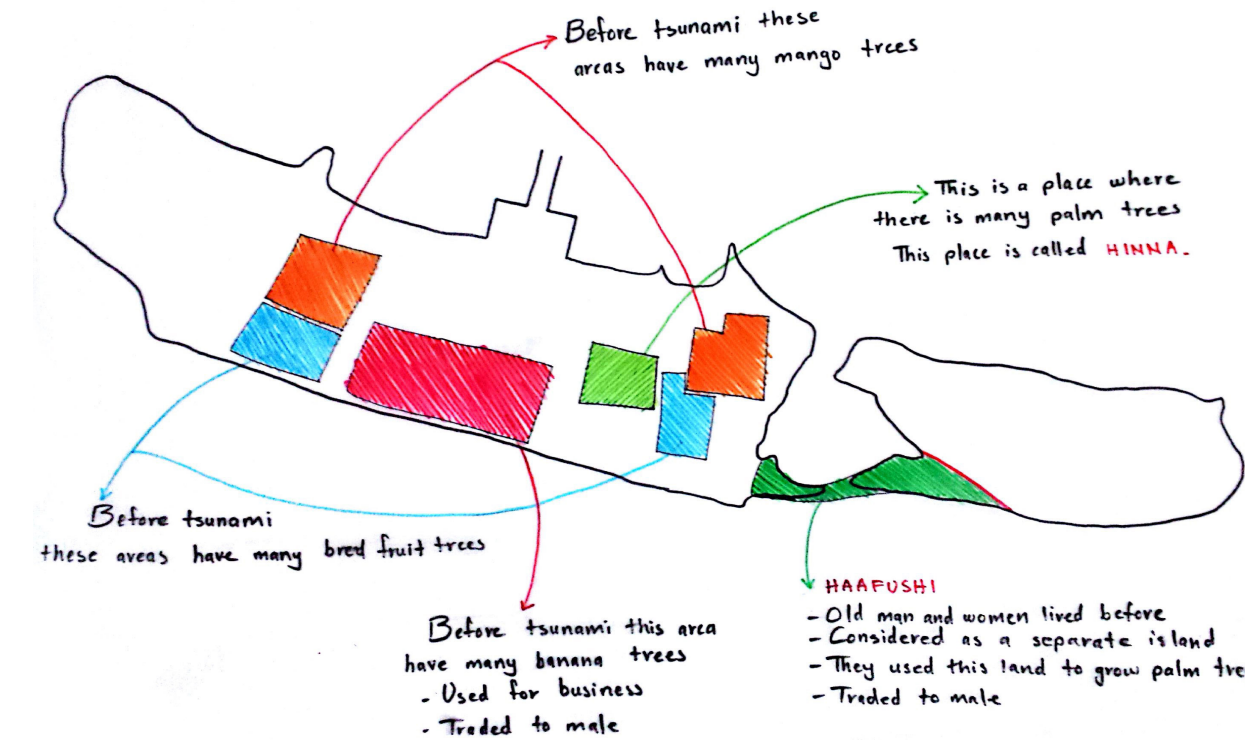 Before tsunami these
areas have many mango trees
This is a place where
there is many palm trees
This place is called HINNA.
Before tsunami
these areas have many bred fruit trees
Before tsunami this area
have many banana trees
- Used for business
- Traded to male
HAAFUSHI
- Old man and women lived before
- Considered as a separate island
- They used this land to grow palm tre
- Traded to male